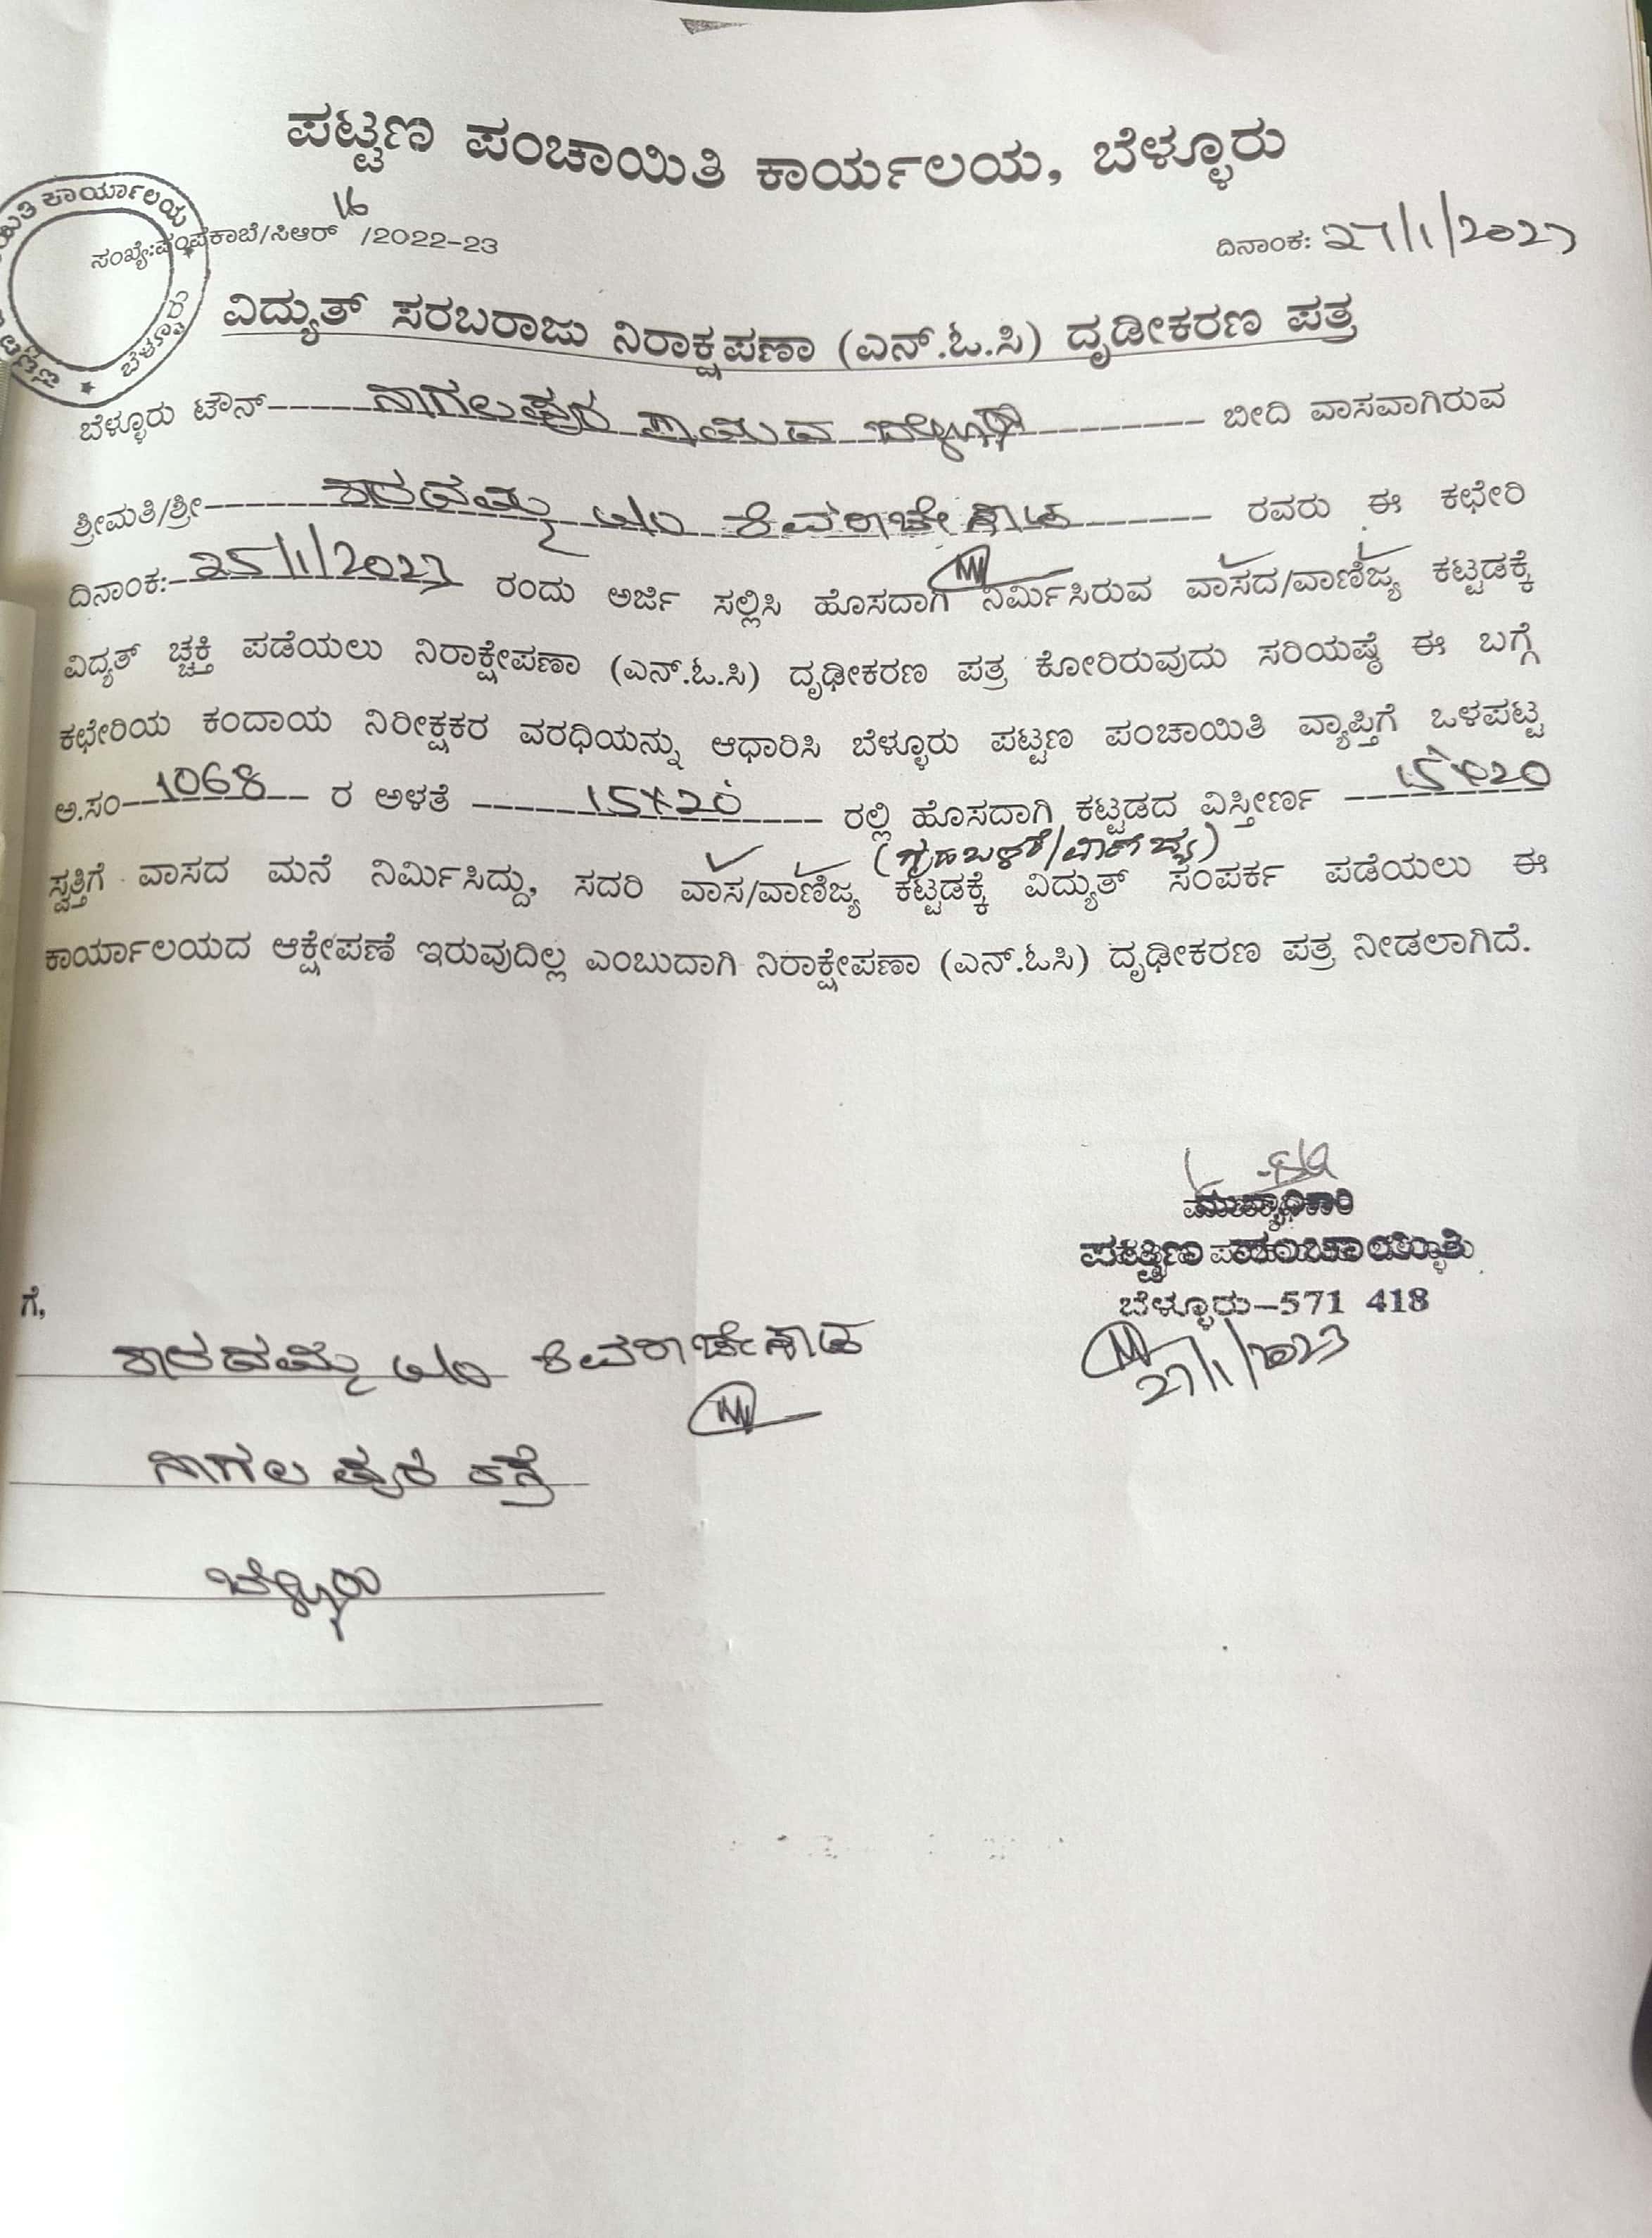 ಪಟ್ಟಣ ಪಂಚಾಯಿತಿ ಕಾರ್ಯಲಯ, ಬೆಳ್ಳೂರು
ಯಿತಿ ಕಾರ್ಯಾಲಯ ಬೆಳ್ಳೂರು
16
ಸಂಖ್ಯೆ:ಪಂಪಕಾಬೆ/ಸಿಆರ್ /2022-23 ದಿನಾಂಕ: 27/1/2023
ವಿದ್ಯುತ್ ಸರಬರಾಜು ನಿರಾಕ್ಷಪಣಾ (ಎನ್.ಓ.ಸಿ) ದೃಡೀಕರಣ ಪತ್ರ
ಬೆಳ್ಳೂರು ಟೌನ್ ನಾಗಲಪುರ ಬೀದಿ ವಾಸವಾಗಿರುವ
ಶ್ರೀಮತಿ/ಶ್ರೀ ಶಾರದಮ್ಮ ಶಿವರಾಜೇಗೌಡ ರವರು ಈ ಕಛೇರಿ
ದಿನಾಂಕ: 25/1/2023 ರಂದು ಅರ್ಜಿ ಸಲ್ಲಿಸಿ ಹೊಸದಾಗಿ ನಿರ್ಮಿಸಿರುವ ವಾಸದ/ವಾಣಿಜ್ಯ ಕಟ್ಟಡಕ್ಕೆ
ವಿದ್ಯತ್ ಚ್ಚಕ್ತಿ ಪಡೆಯಲು ನಿರಾಕ್ಷೇಪಣಾ (ಎನ್.ಓ.ಸಿ) ದೃಢೀಕರಣ ಪತ್ರ ಕೋರಿರುವುದು ಸರಿಯಷ್ಠೆ ಈ ಬಗ್ಗೆ
ಕಛೇರಿಯ ಕಂದಾಯ ನಿರೀಕ್ಷಕರ ವರಧಿಯನ್ನು ಆಧಾರಿಸಿ ಬೆಳ್ಳೂರು ಪಟ್ಟಣ ಪಂಚಾಯಿತಿ ವ್ಯಾಪ್ತಿಗೆ ಒಳಪಟ್ಟ
ಅ.ಸಂ 1068 ರ ಅಳತೆ 15x20 ರಲ್ಲಿ ಹೊಸದಾಗಿ ಕಟ್ಟಡದ ವಿಸ್ತೀರ್ಣ 15x20
ಸ್ವತ್ತಿಗೆ ವಾಸದ ಮನೆ ನಿರ್ಮಿಸಿದ್ದು, ಸದರಿ ವಾಸ/ವಾಣಿಜ್ಯ ಕಟ್ಟಡಕ್ಕೆ ವಿದ್ಯುತ್ ಸಂಪರ್ಕ ಪಡೆಯಲು ಈ
ಕಾರ್ಯಾಲಯದ ಆಕ್ಷೇಪಣೆ ಇರುವುದಿಲ್ಲ ಎಂಬುದಾಗಿ ನಿರಾಕ್ಷೇಪಣಾ (ಎನ್.ಓಸಿ) ದೃಢೀಕರಣ ಪತ್ರ ನೀಡಲಾಗಿದೆ.
ಮುಖ್ಯಾಧಿಕಾರಿ
ಪಟ್ಟಣ ಪಂಚಾಯ್ತಿ
ಬೆಳ್ಳೂರು-571 418
27/1/2023
ಗೆ,
ಶಾರದಮ್ಮ ಶಿವರಾಜೇಗೌಡ
ನಾಗಲಪುರ ರಸ್ತೆ
ಬೆಳ್ಳೂರು